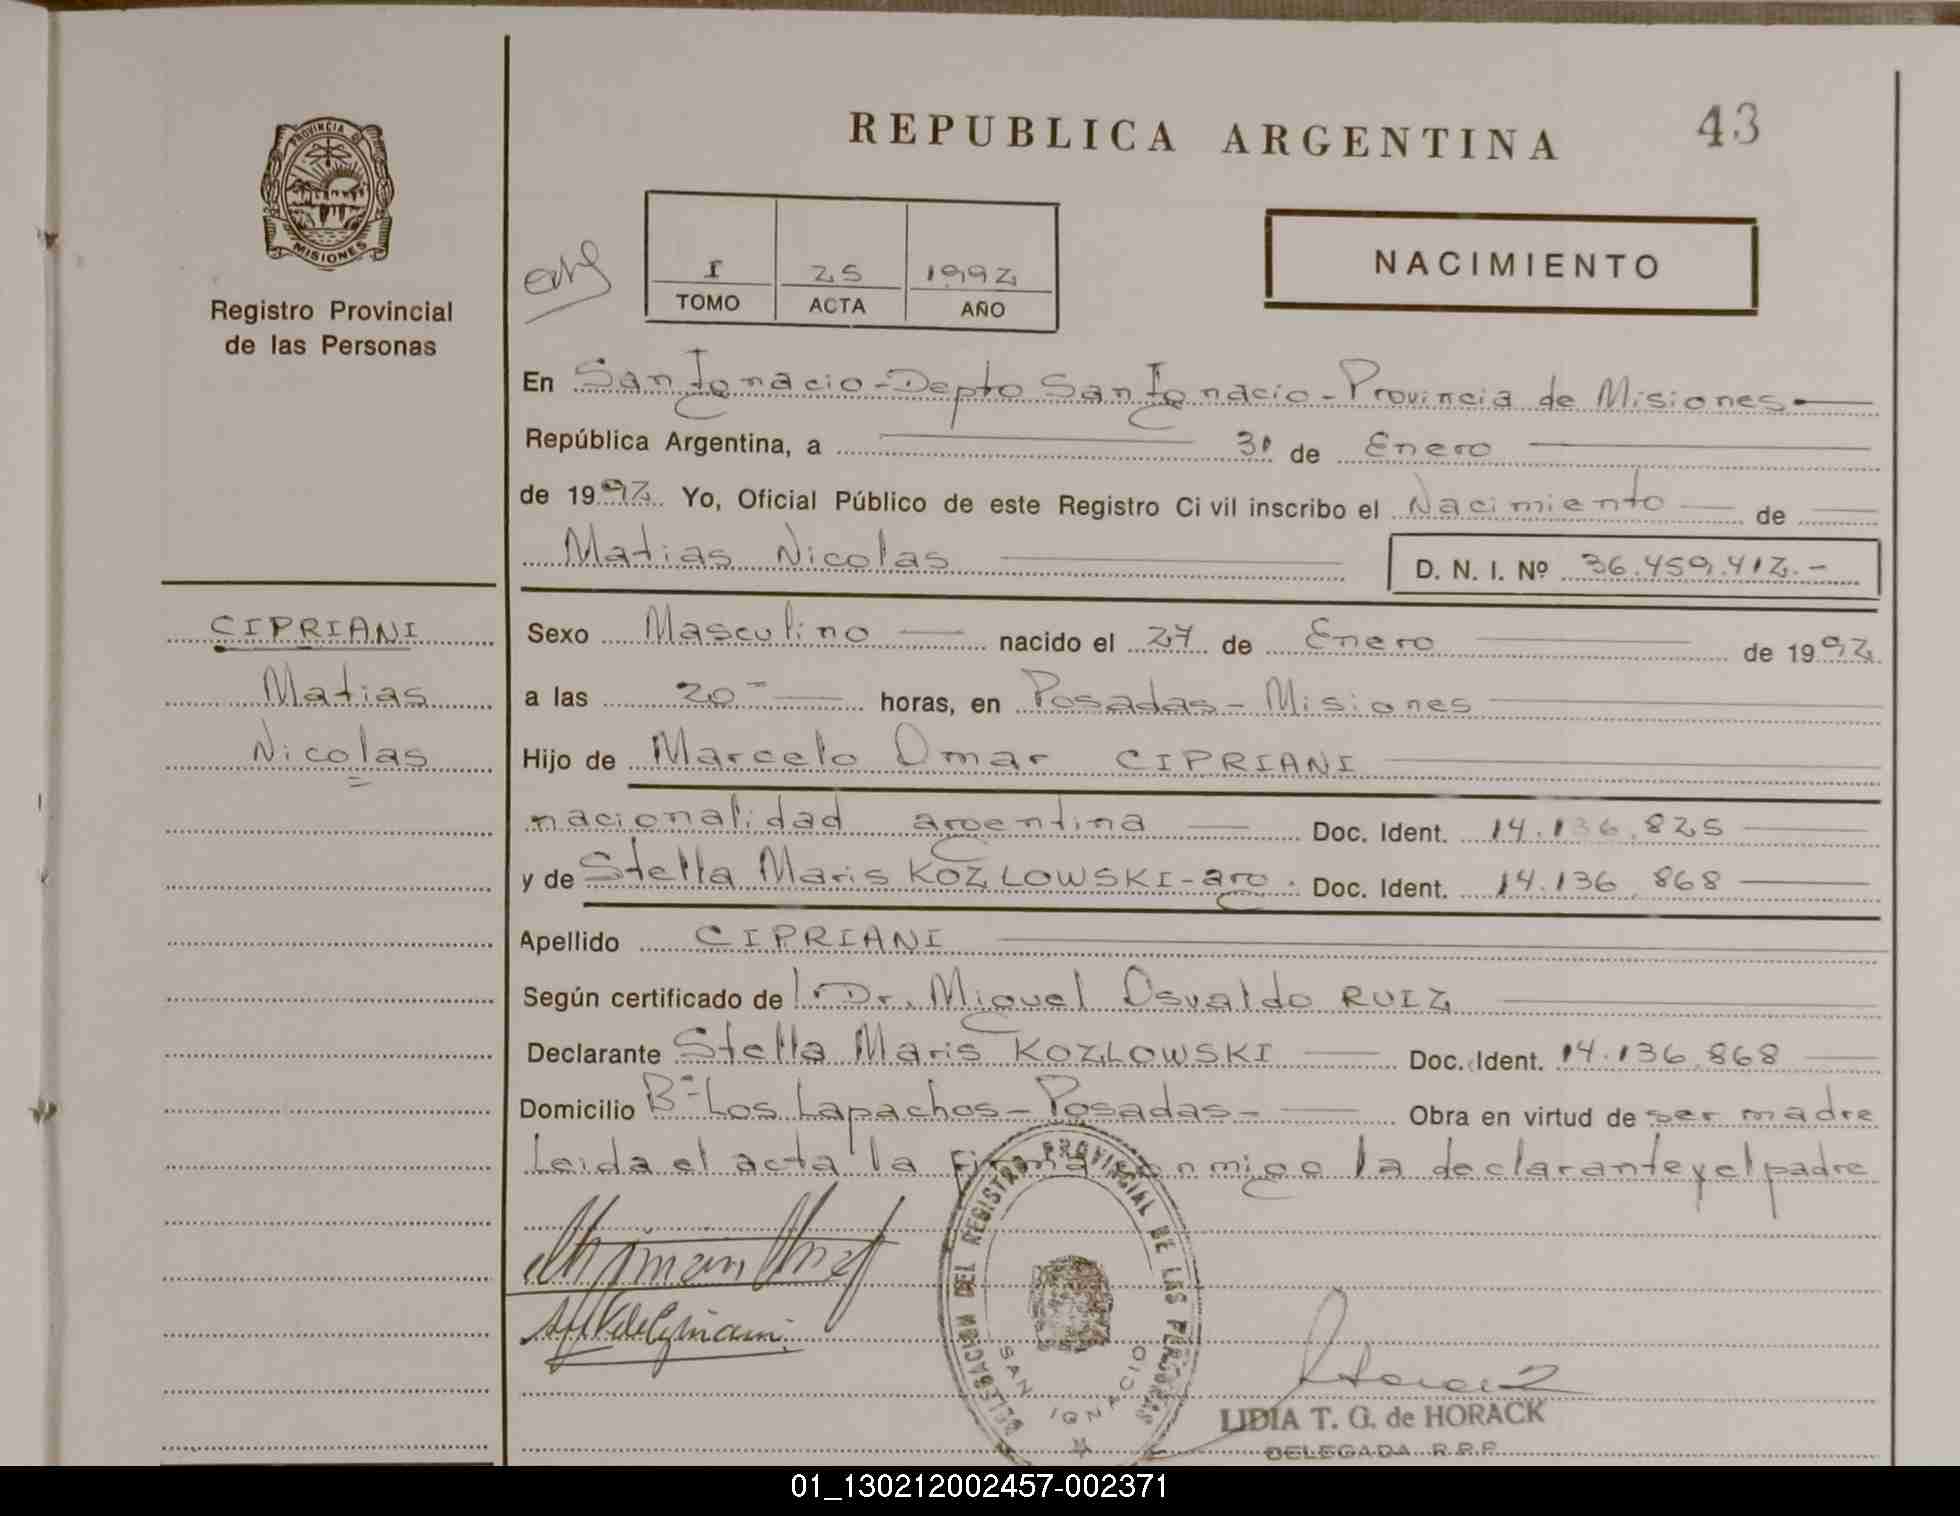 REPUBLICA ARGENTINA
43
PROVINCIA DE
MISIONES
Registro Provincial
de las Personas
I 25 1992
TOMO ACTA AÑO
NACIMIENTO
En San Ignacio - Depto San Ignacio - Provincia de Misiones
República Argentina, a 31 de Enero
de 1992 Yo, Oficial Público de este Registro Civil inscribo el Nacimiento de
Matias Nicolas D. N. I. Nº 36.459.412.-
CIPRIANI
Matias
Nicolas
Sexo Masculino nacido el 27 de Enero de 1992
a las 20 horas, en Posadas - Misiones
Hijo de Marcelo Omar CIPRIANI
nacionalidad argentina Doc. Ident. 14.136.825
y de Stella Maris KOZLOWSKI - arg. Doc. Ident. 14.136.868
Apellido CIPRIANI
Según certificado de l. Dr. Miguel Osvaldo RUIZ
Declarante Stella Maris KOZLOWSKI Doc. Ident. 14.136.868
Domicilio Bº Los Lapachos - Posadas - Obra en virtud de ser madre
Leida el acta la firma conmigo la declarante y el padre
DELEGACION DEL REGISTRO PROVINCIAL DE LAS PERSONAS
SAN IGNACIO
LIDIA T. G. de HORACK
DELEGADA R.P.P.
01_130212002457-002371